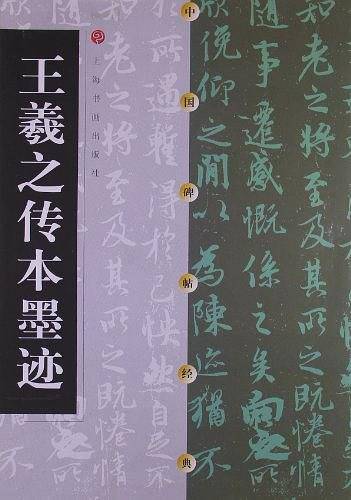 中国碑帖经典
王羲之传本墨迹
上海书画出版社
知老之將至及其所之既惓情
隨事遷感慨係之矣向之所
欣俛仰之閒以為陳迹猶不
於所遇蹔得於己怏然自足不
知老之將至及其所之既惓情